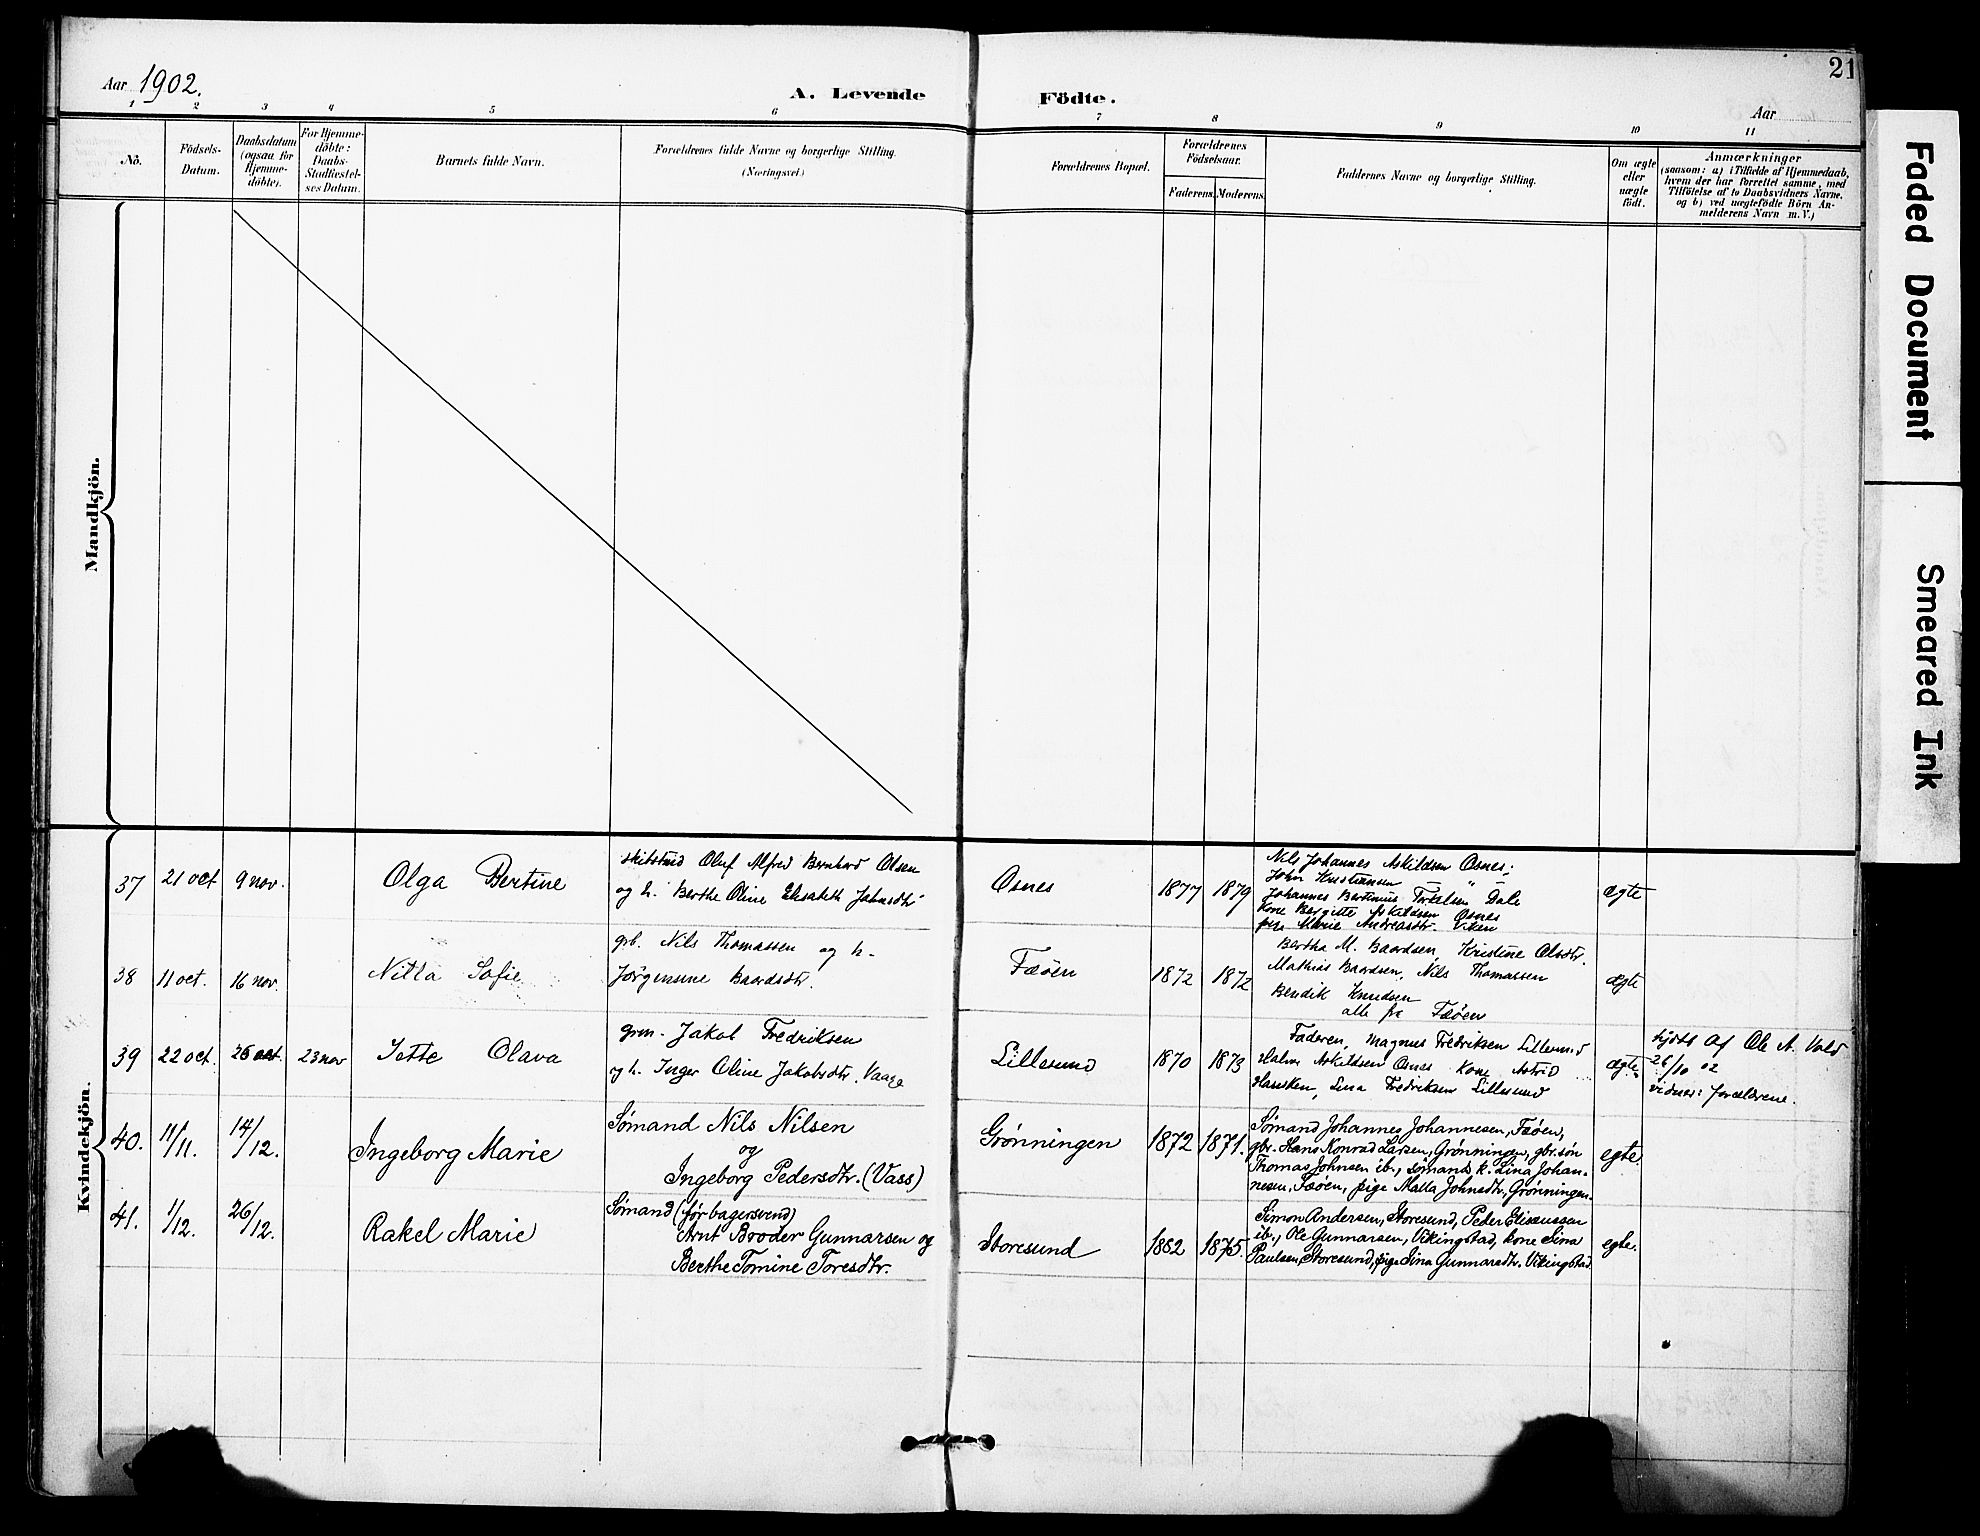 21
Aar 1902.
A. Levende Födte.
Aar
1 2 3 4 5 6 7 8 9 10 11
No.
Födsels-
Datum.
Daabsdatum
(ogsaa for
Hjemme-
döbte).
For Hjemme-
döbte:
Daabs-
Stadfæstel-
ses Datum.
Barnets fulde Navn.
Forældrenes fulde Navne og borgerlige Stilling.
(Næringsvei.)
Forældrenes Bopæl.
Forældrenes
Födselsaar.
Faderens. Moderens.
Faddernes Navne og borgerlige Stilling.
Om ægte
eller
uægte
født.
Anmærkninger
(saasom: a) i Tilfælde af Hjemmedaab,
hvem der har forrettet samme, med
Tilföielse af to Daabsvidners Navne,
og b) ved uægtefödte Börn An-
melderens Navn m. V.)
Mandkjön.
Kvindekjön.
37 21 oct 9 nov. Olga Bertine
Oluf Alfred Bernhard Olsen
og h. Berthe Oline Elisabeth Johnsdtr
Osnes 1877 1879
Nils Johannes Askildsen Osnes;
John Kristiansen "
Johannes Bertinius Torkelsen Dale
Kone Bergitte Askildsen Osnes
pige Marie Andreasdtr. Viken
ægte
38 11 oct. 16 nov. Nilla Sofie
grb. Nils Thomassen og h.
Jörgensine Baardsdtr.
Fæöen 1872 1872
Bertha M. Baardsen, Kristine Olsdtr.
Mathias Baardsen, Nils Thomassen
Bendik Knudsen
alle fra Fæöen
ægte
39 22 oct. 26 oct. 23 nov Jette Olava
grm. Jakob Fredriksen
og h. Inger Oline Jakobsdtr. Vaage
Lillesund 1870 1873
Faderen, Magnus Fredriksen Lillesund
Halvor Askildsen Osnes Kone Astrid
Hansken, Lina Fredriksen Lillesund
ægte
hjdbt af Ole A. Vold
26/10 02
vidner: forældrene.
40. 11/11. 14/12. Ingeborg Marie
Sømand Nils Nilsen
og
Ingeborg Pedersdtr. (Vass)
Grønningen 1872 1871.
Sømand Johannes Johannesen, Fæøen,
gbr. Hans Konrad Larsen, Grønningen, gbr.søn
Thomas Johnsen ib., sømands k. Lina Johan-
nesen, Fæøen, pige Malla Johnsdtr., Grønningen.
egte.
41. 1/12. 26/12. Rakel Marie
Sømand (før bagersvend)
Arnt Broder Gunnarsen og
Berthe Tomine Toresdtr.
Storesund 1882 1875.
Simon Andersen, Storesund, Peder Eliseussen
ib., Ole Gunnarsen, Vikingstad, kone Sina
Paulsen, Storesund, pige Sina Gunnarsdtr. Vikingstad
egte.
Faded Document
Smeared Ink